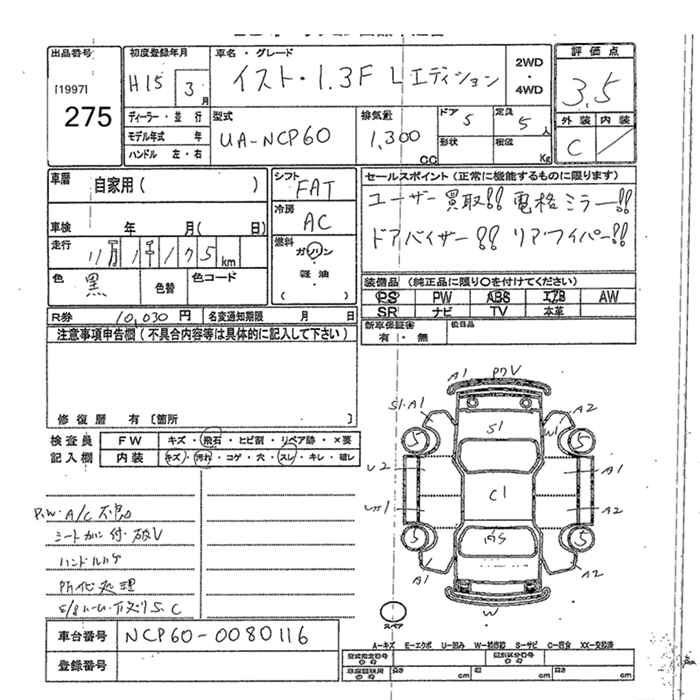 出品番号
[1997]
275
初度登録年月
H15 3月
車名・グレード
イスト・1.3F Lエディション
2WD
・
4WD
評価点
3.5
外装 内装
C
ディーラー・並行
モデル年式 年
ハンドル 左・右
型式
UA-NCP60
排気量
1,300
CC
ドア 5
定員 5人
形状
積載 Kg
車歴
自家用( )
車検 年 月( 日)
走行
km
色 黒
色替
色コード
シフト
FAT
冷房
AC
燃料
ガソリン
・
軽油
( )
セールスポイント(正常に機能するものに限ります)
ユーザー買取!! 電格ミラー!!
ドアバイザー!! リアワイパー!!
装備品(純正品に限り○を付けてください)
PS PW ABS エアB AW
SR ナビ TV 本革
新車保証書
有・無
R券 10,030円
名変通知期限 月 日
注意事項申告欄(不具合内容等は具体的に記入して下さい)
修復歴 有[箇所 ]
検査員
記入欄
FW キズ・飛石・ヒビ割・リペア跡・×要
内装 キズ・汚れ・コゲ・穴・スレ・キレ・破レ
P.W・A/C
ハンドルハゲ
処理
車台番号 NCP60-0080116
登録番号
A1
S1・A1
A2
S1
W1
5
5
U2
A1
C1
A2
5
5
A1
A2
W
スペア
A-キズ E-エクボ U-凹み W-補修跡 S-サビ C-腐食 XX-交換済
型式指定番号
類別区分番号
cm
cm
cm